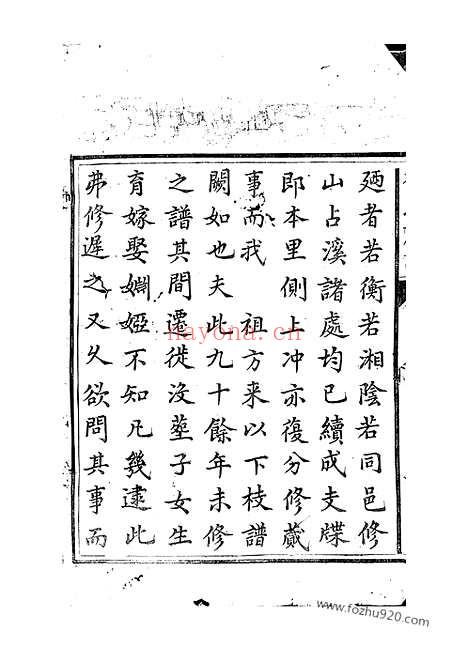 廼者若衡若湘陰若同邑修
山占溪諸處均已續成支牒
即本里側上冲亦復分修蕆
事而我 祖方来以下枝譜
闕如也夫此九十餘年未修
之譜其間遷徙没塟子女生
育嫁娶婣婭不知凡幾逮此
弗修遲之又久欲問其事而
nayona.cn
www.fozhu920.com